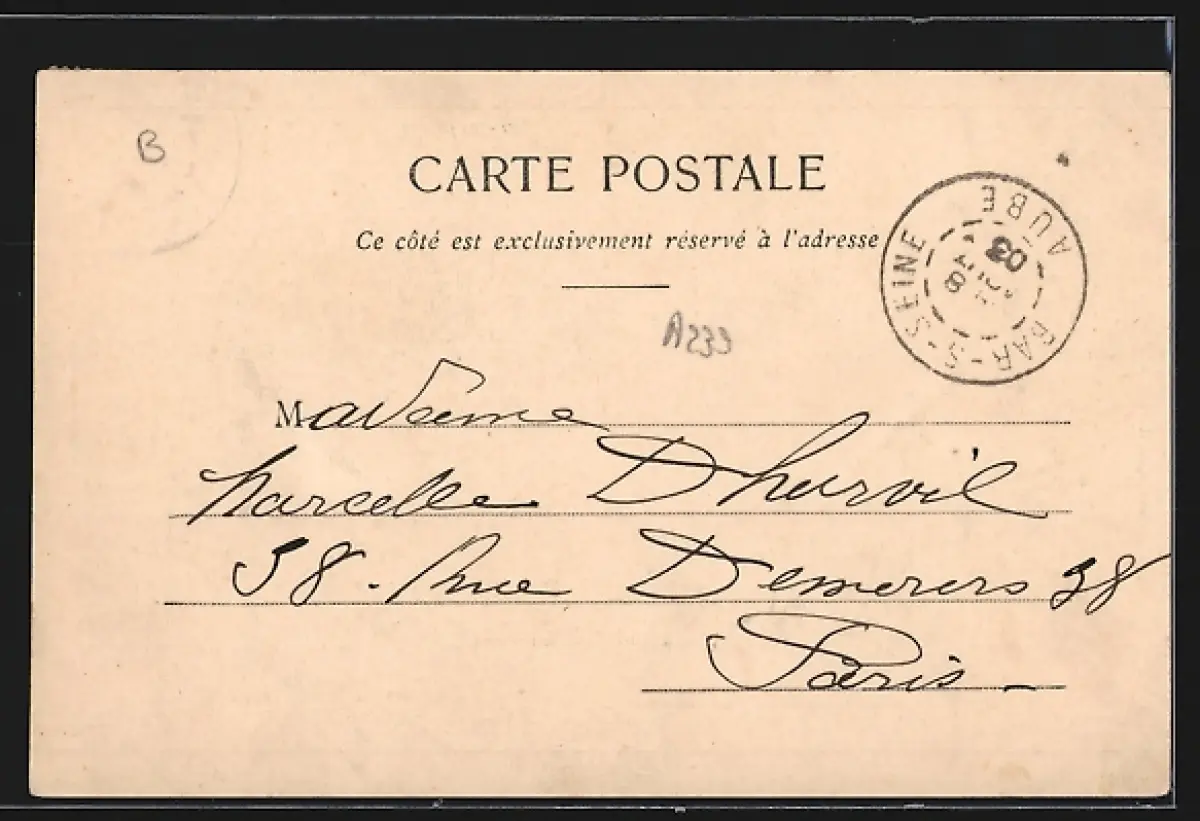 B
CARTE POSTALE
Ce côté est exclusivement réservé à l'adresse
BAR-S-SEINE AUBE
03
A233
Madame
Marcelle Dhurvil
38. Rue Demours 38
Paris